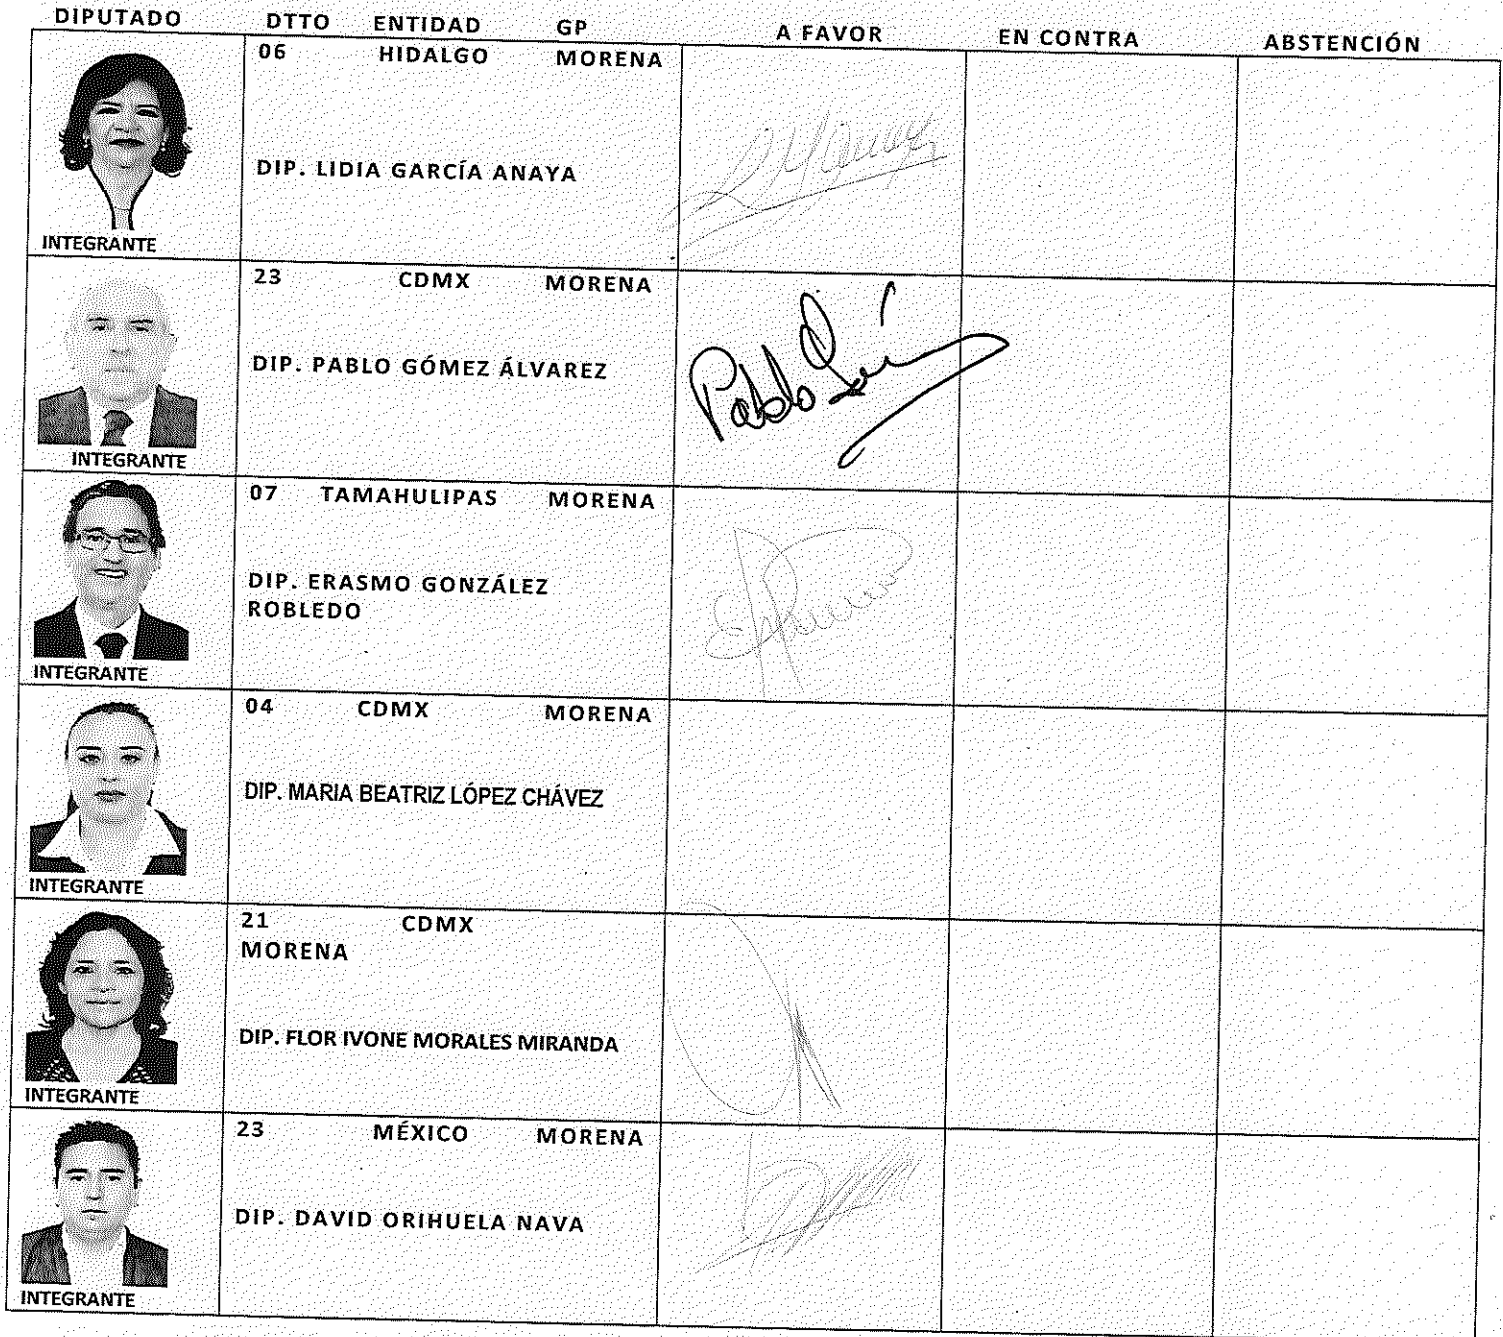 DIPUTADO DTTO ENTIDAD GP A FAVOR EN CONTRA ABSTENCIÓN
06 HIDALGO MORENA
DIP. LIDIA GARCÍA ANAYA
INTEGRANTE
23 CDMX MORENA
DIP. PABLO GÓMEZ ÁLVAREZ
Pablo
INTEGRANTE
07 TAMAHULIPAS MORENA
DIP. ERASMO GONZÁLEZ
ROBLEDO
INTEGRANTE
04 CDMX MORENA
DIP. MARIA BEATRIZ LÓPEZ CHÁVEZ
INTEGRANTE
21 CDMX
MORENA
DIP. FLOR IVONE MORALES MIRANDA
INTEGRANTE
23 MÉXICO MORENA
DIP. DAVID ORIHUELA NAVA
INTEGRANTE